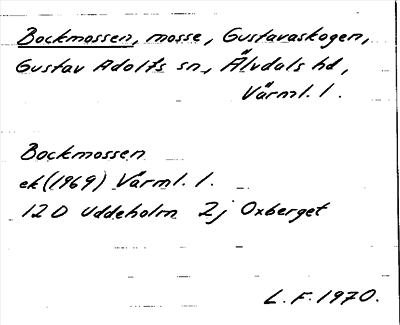 Bockmossen, mosse, Gustavaskogen,
Gustav Adolfs sn, Älvdals hd,
Värml. l.
Bockmossen
ek (1969) Värml. l.
12 D Uddeholm 2j Oxberget
L. F. 1970.